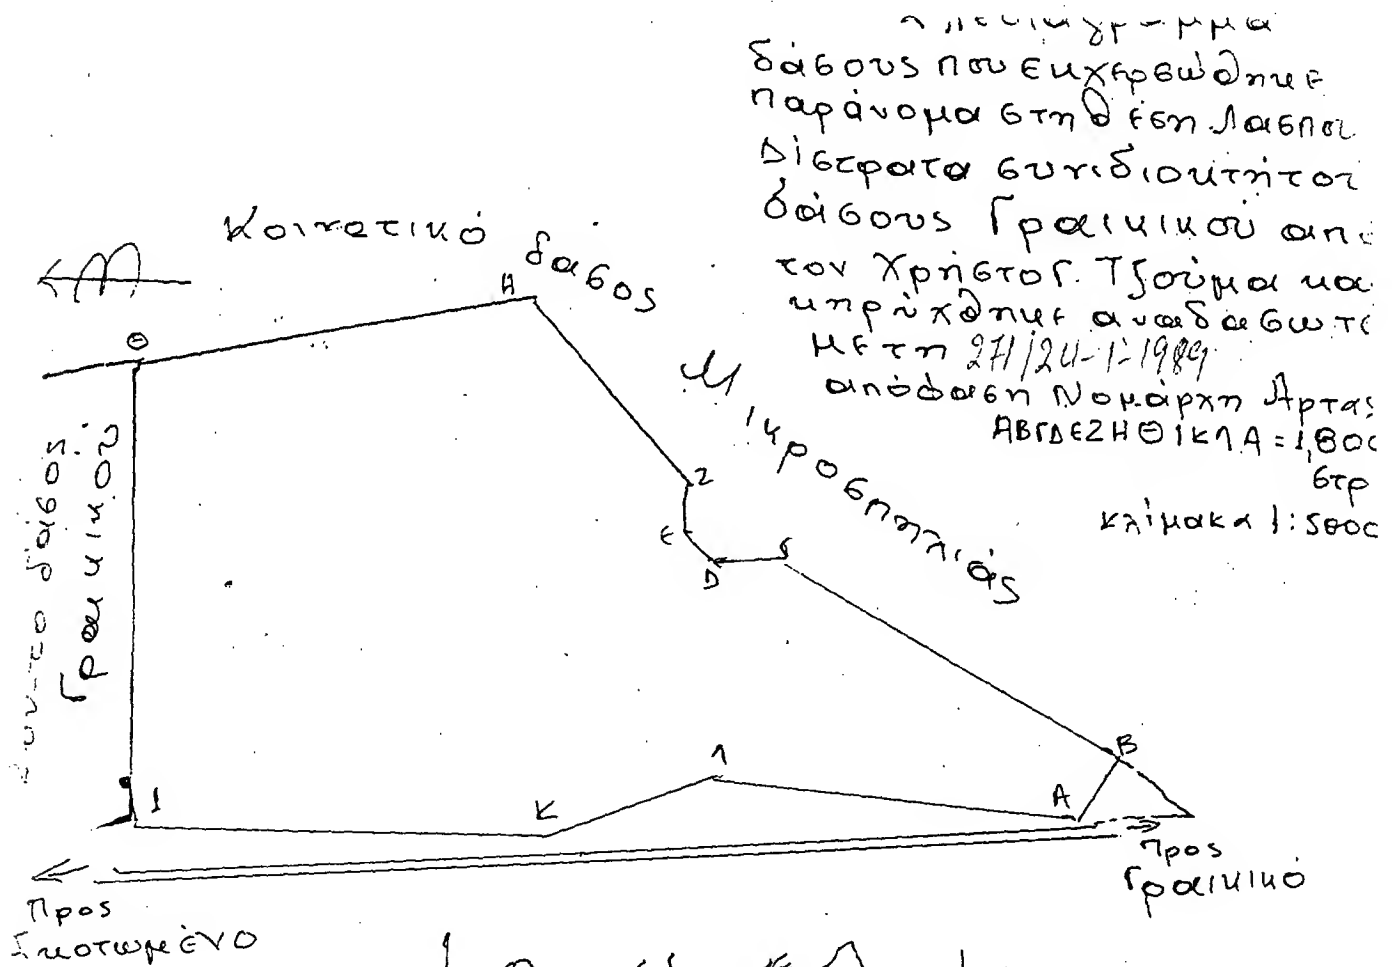 δάσους που εκχερσώθηκε
παράνομα στη θέση Λασποι
Δίστρατα συνιδιοκτήτοι
δάσους Γραικικού από
τον Χρήστο Γ. Τζούμα κα
κηρύχθηκε αναδασωτέ
με τη 271/24-1-1989
απόφαση Νομάρχη Άρτας
ΑΒΓΔΕΖΗΘΙΚΛΑ = 1,800
στρ
κλίμακα 1:500
Κοινοτικό δάσος Μικροσπηλιάς
δάσος
Γραικικού
Θ
Η
Ζ
Ε
Δ
Γ
Β
Α
Λ
Κ
Ι
Προς
Γραικικό
Προς
Σκοτωμένο